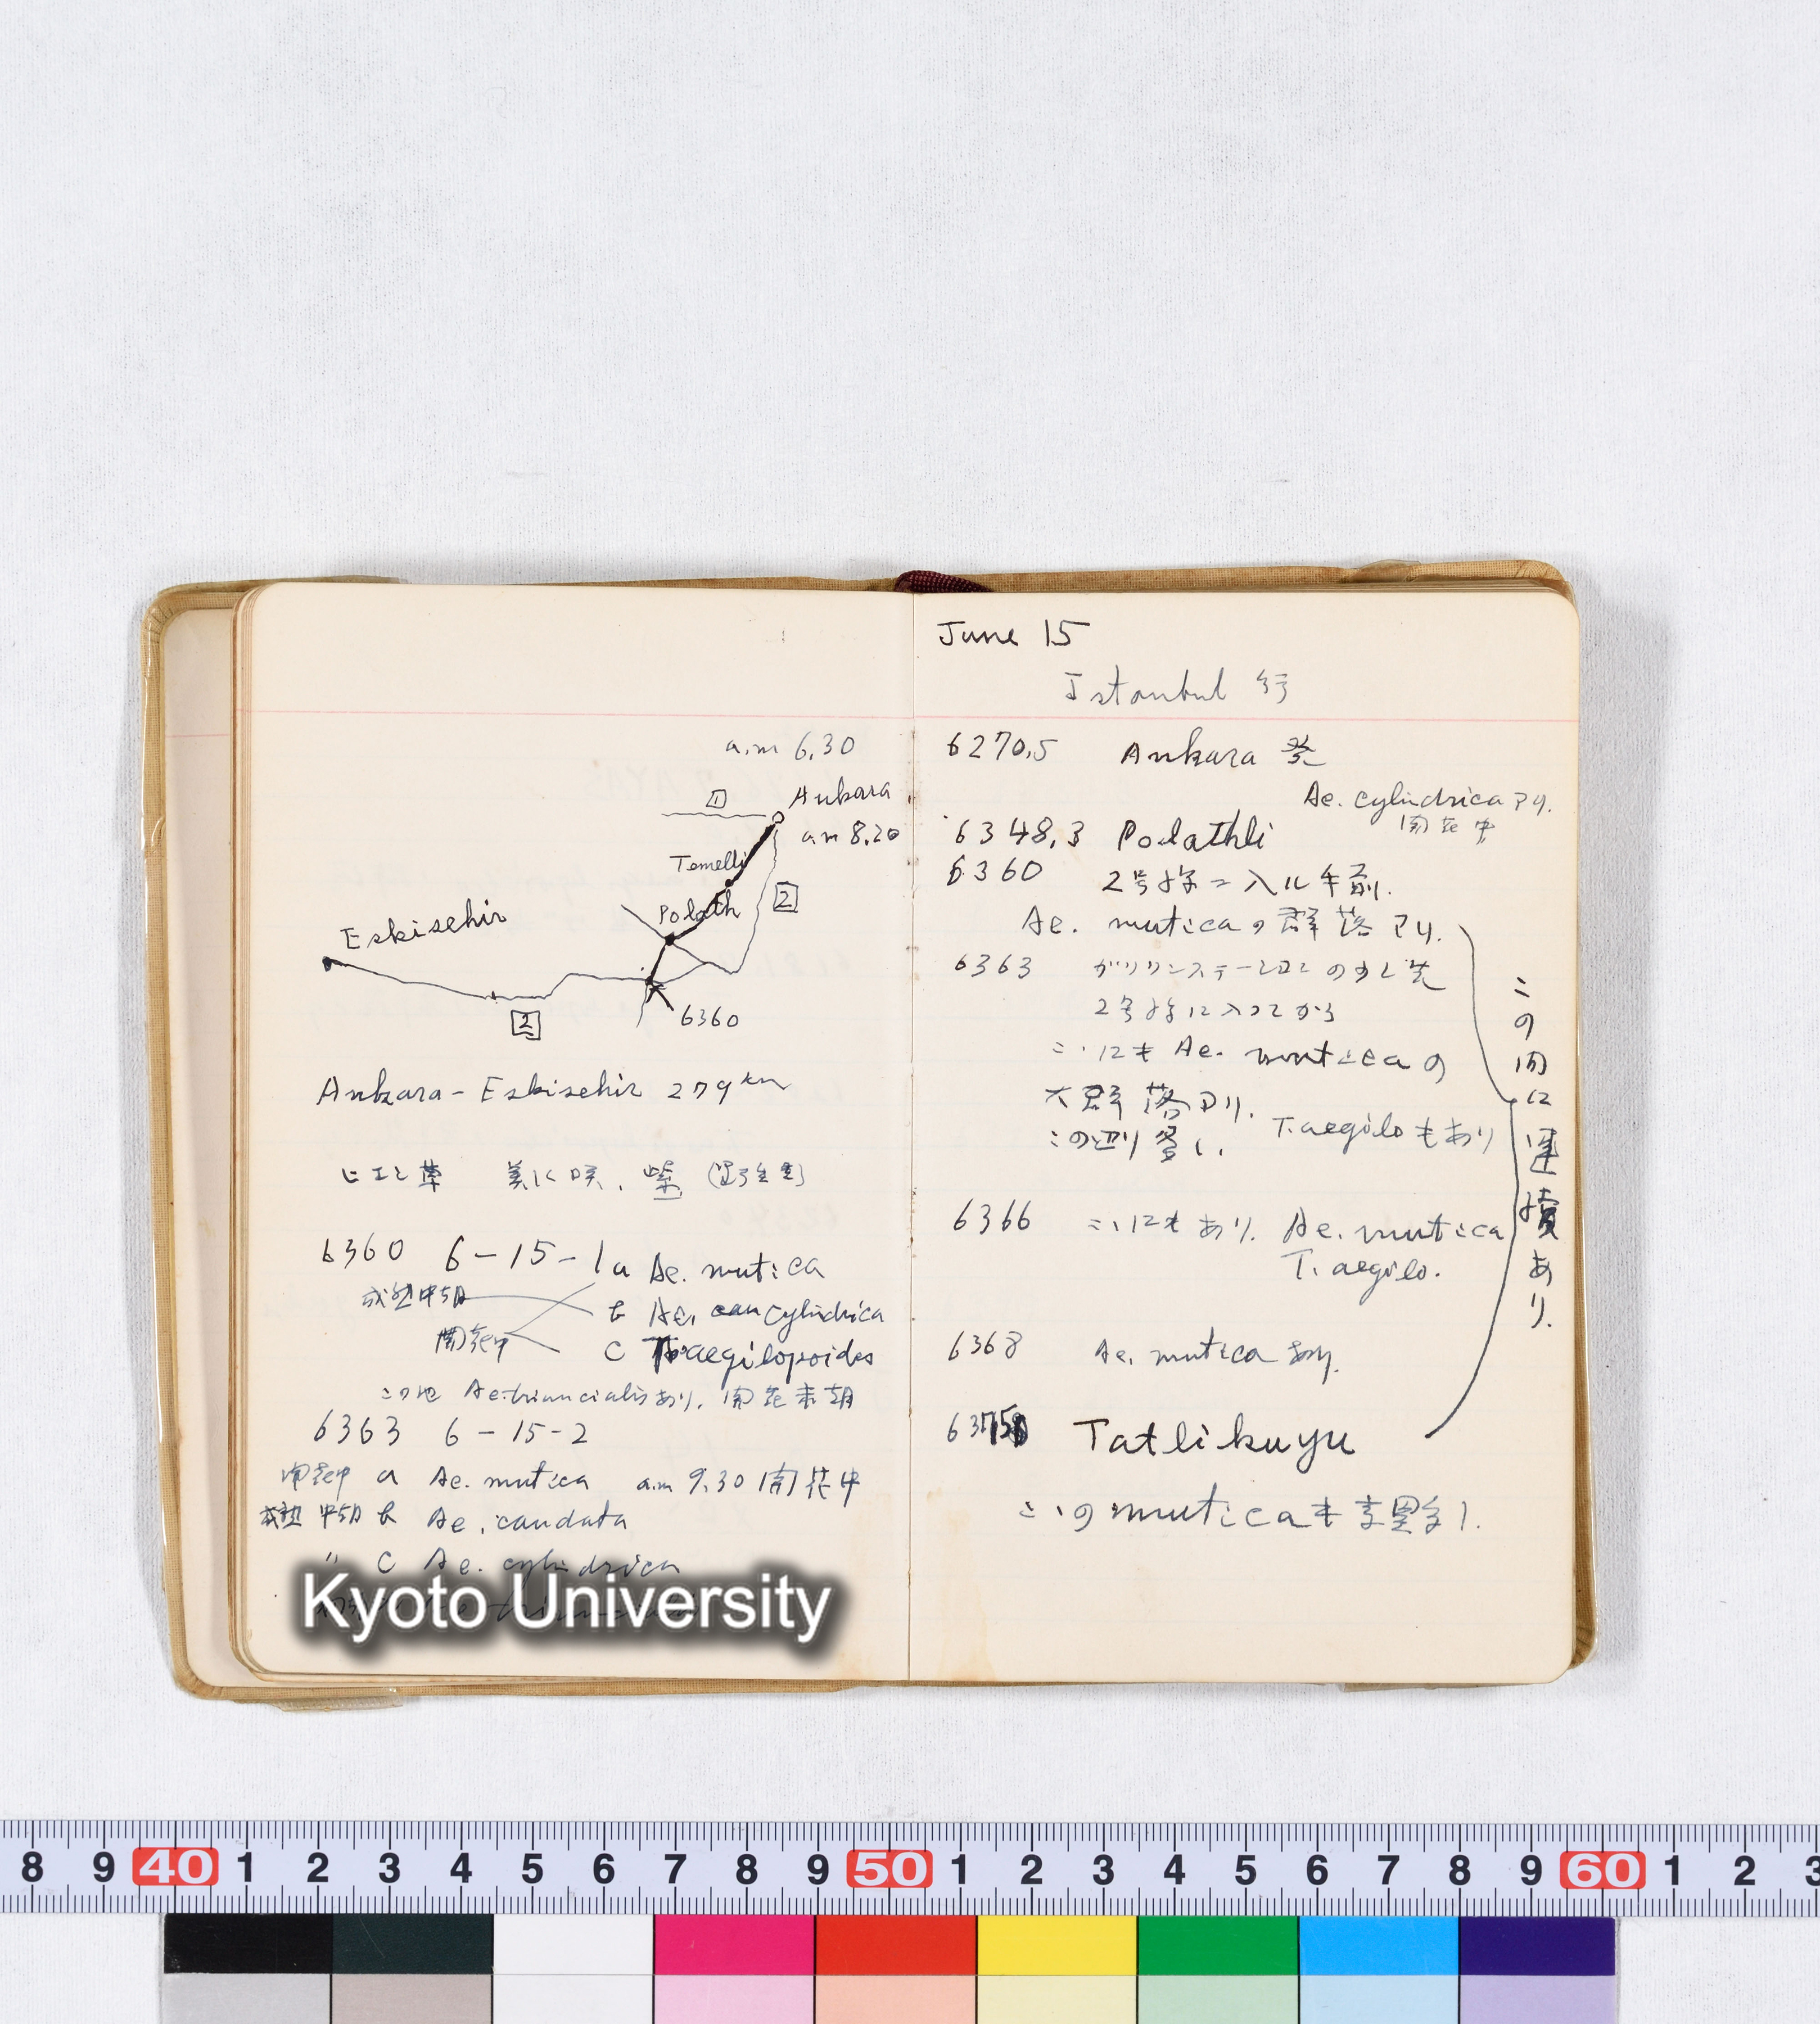 a.m 6.30
1
Ankara
am 8.20
Temelli
2
Polath
Eskisehir
2
6360
Ankara - Eskisehir 279 km
ヒエン草 美に咲、紫
6360 6-15-1 a Ae. mutica
成熟中期 b Ae. cylindrica
開花中 c T. aegilopoides
この地 Ae. triuncialisあり. 開花末期
6363 6-15-2
開花中 a Ae. mutica am 9.30 開花中
成熟中期 b Ae. caudata
〃 c Ae. cylindrica
Kyoto University
June 15
Istanbul 行
6270.5 Ankara 発
Ae. cylindrica アリ.
開花中
6348.3 Polathli
6360 2号線ニ入ル手前.
Ae. muticaの群落アリ.
6363 ガソリンステーションの少し先
2号線に入ってから
こゝにも Ae. muticaの
大群落アリ.
この辺り多し. T. aegiloもあり
6366 こゝにもあり. Ae. mutica
T. aegilo.
6368 Ae. mutica あり.
Tatlikuyu
こゝのmuticaも
この間に連続あり.